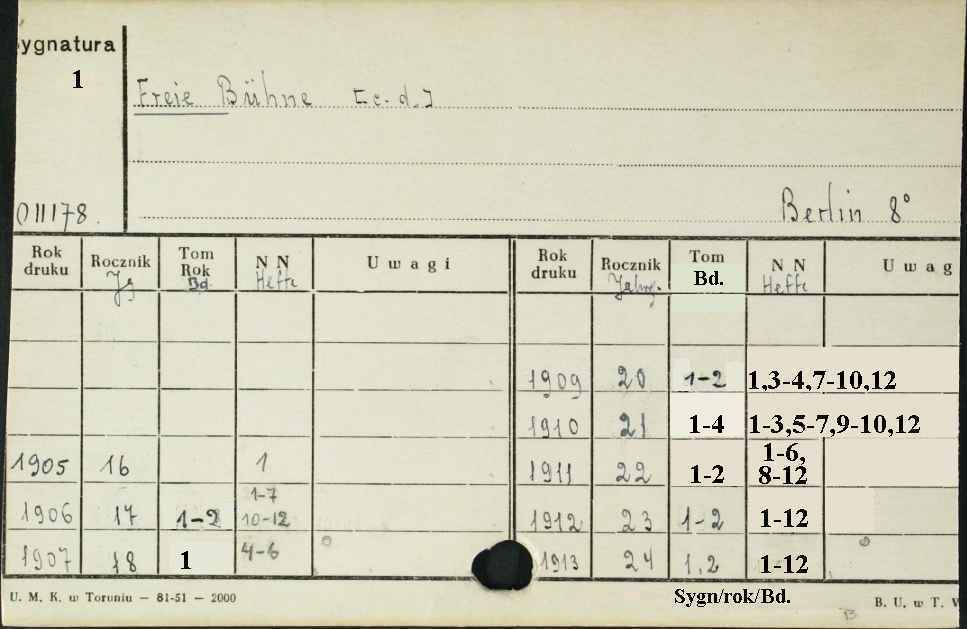 ygnatura
1
Freie Bühne [c.d.]
011178.
Berlin 8°
Rok druku Rocznik Jg Tom Rok Bd. N N Hefte Uwagi Rok druku Rocznik Jahrg. Tom Bd. N N Hefte Uwag
1909 20 1-2 1,3-4,7-10,12
1910 21 1-4 1-3,5-7,9-10,12
1905 16 1 1911 22 1-2 1-6, 8-12
1906 17 1-2 1-7 10-12 1912 23 1-2 1-12
1907 18 1 4-6 1913 24 1,2 1-12
U. M. K. w Toruniu — 81-51 — 2000
Sygn/rok/Bd.
B. U. w T.
B